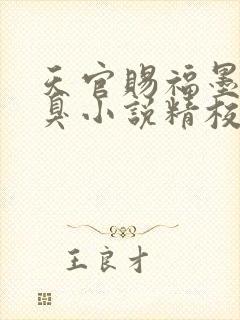 天官赐福墨
臭小说精校
王良才